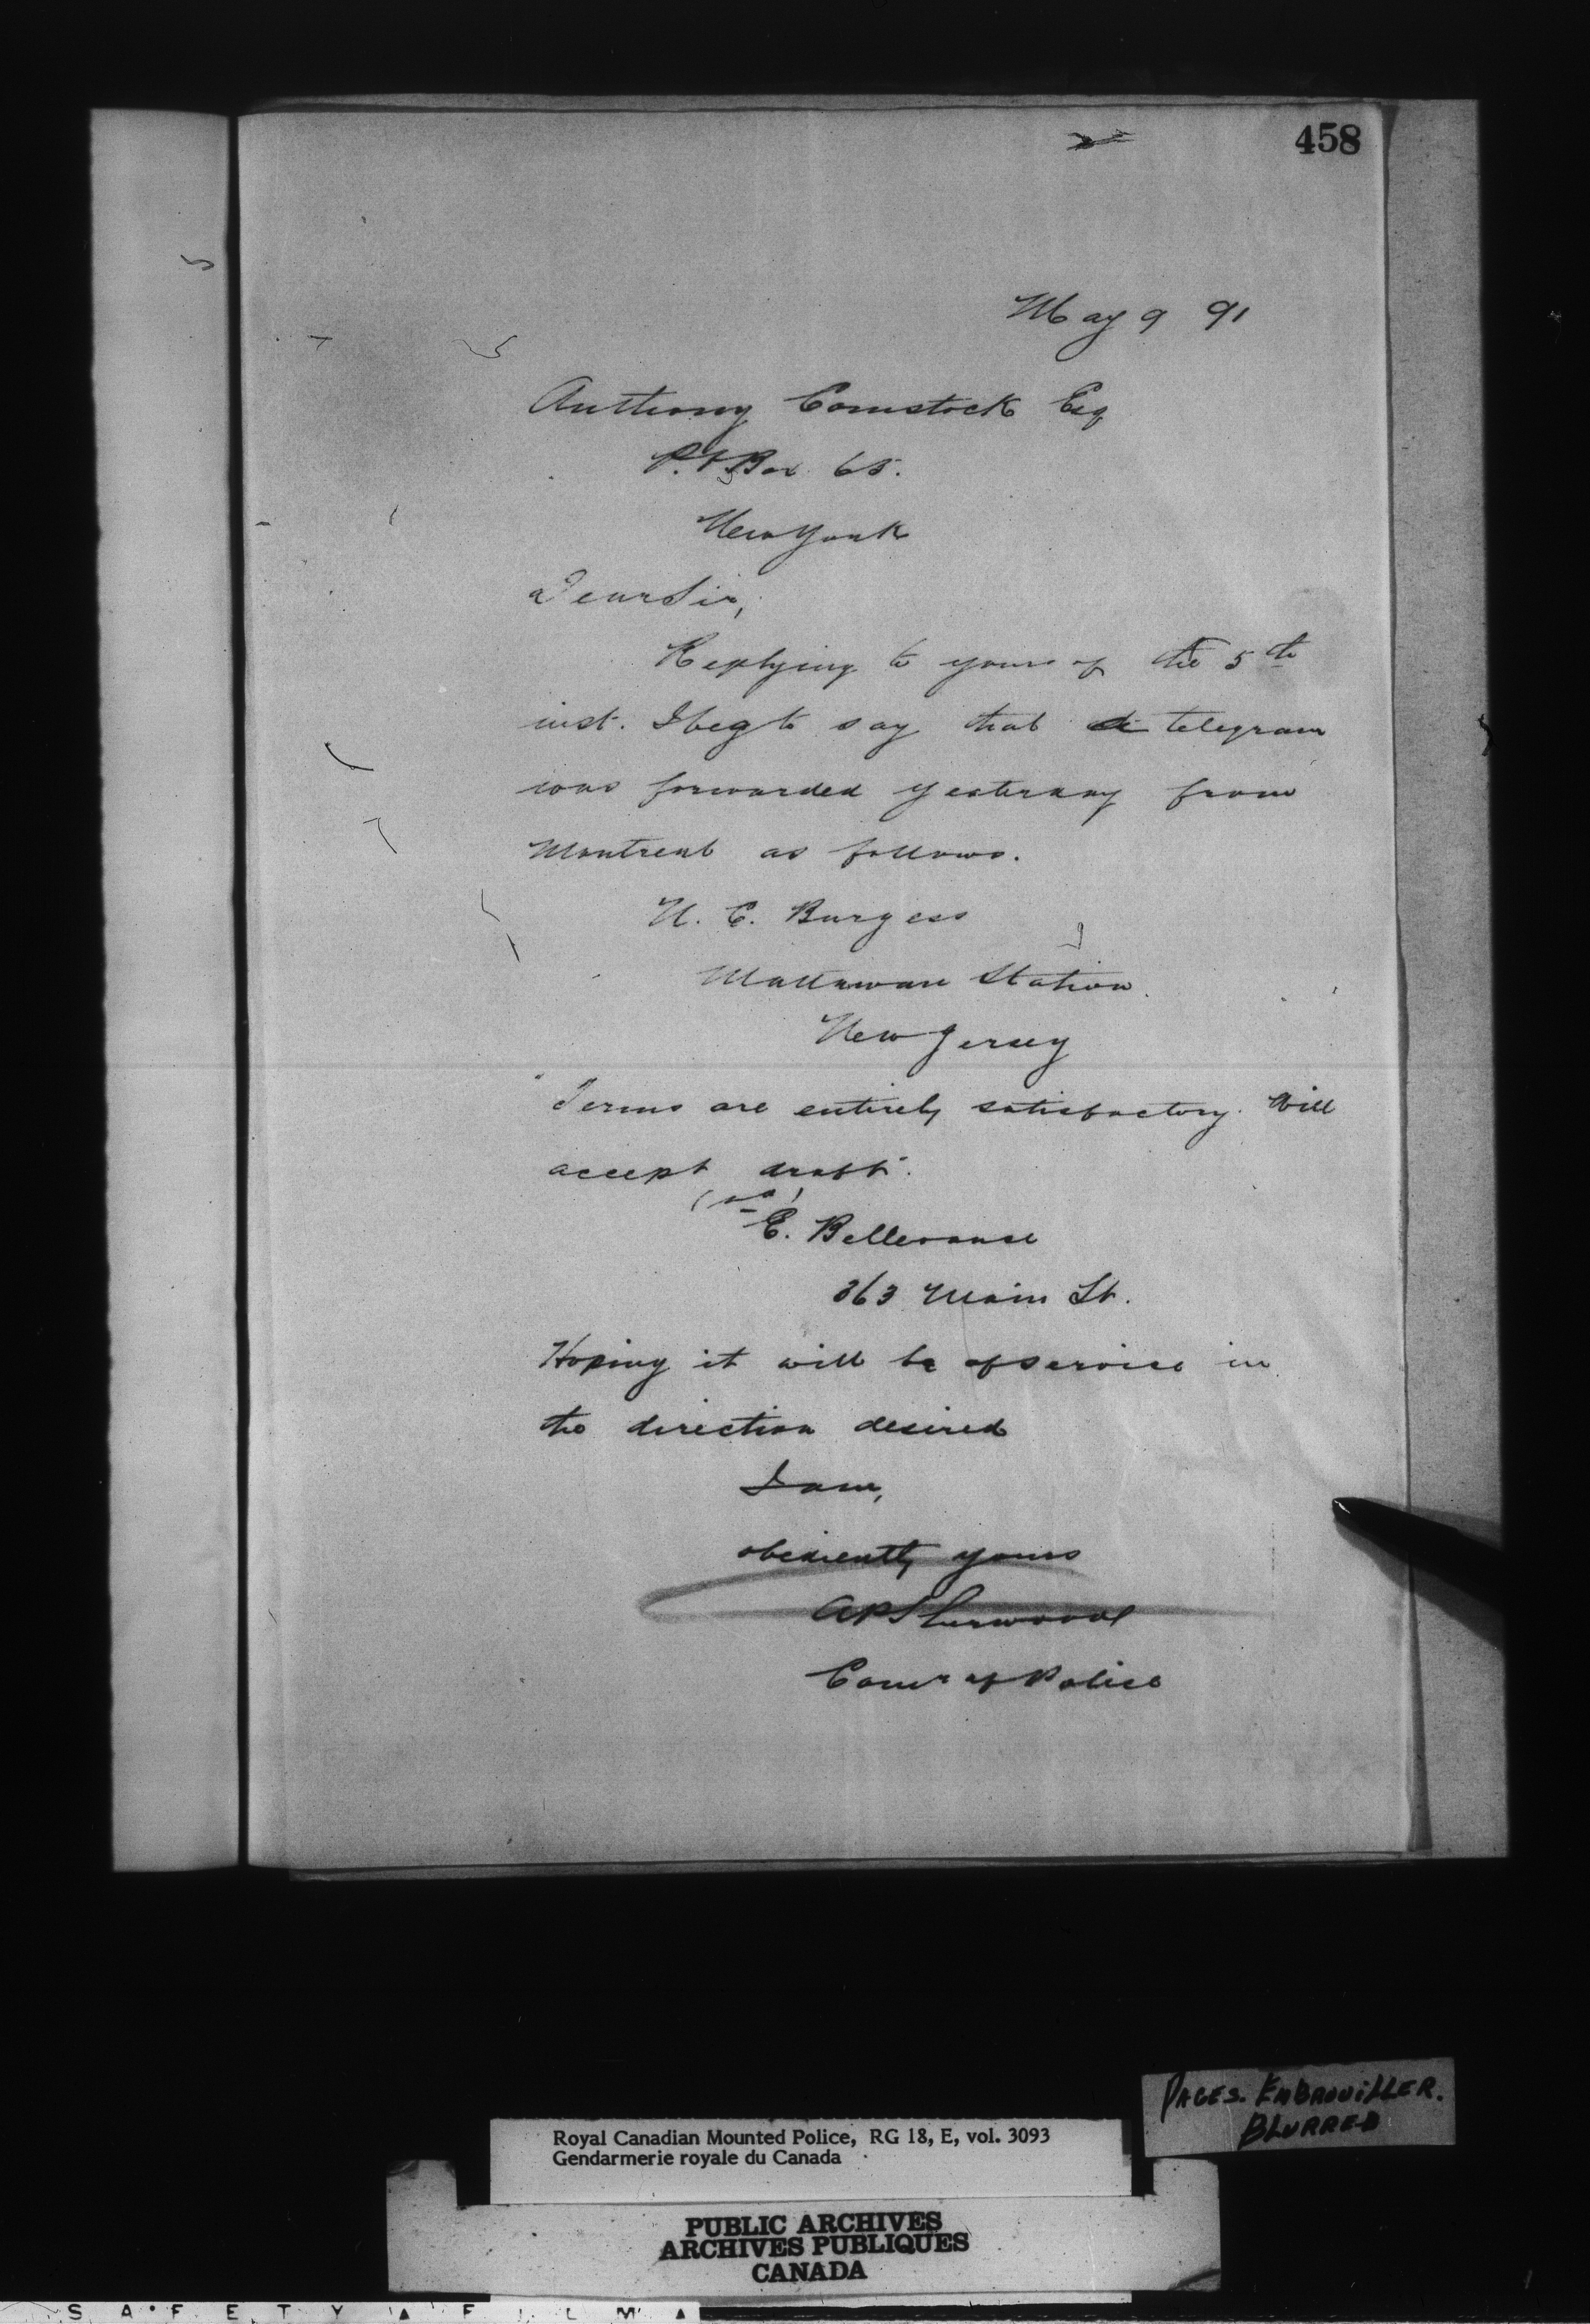 458
May 9 91
Anthony Comstock Esq
P.O Box 65.
New York
Dear Sir,
Replying to yours of the 5th
inst. I beg to say that a telegram
was forwarded yesterday from
Montreal as follows.
U. C. Burgess
Mattawan Station
New Jersey
"Terms are entirely satisfactory. Will
accept draft".
E. Bellevance
363 Main St.
Hoping it will be of service in
the direction desired
I am,
obediently yours
A P Sherwood
Comr of Police
PAGES. EMBROUILLER.
BLURRED
Royal Canadian Mounted Police, RG 18, E, vol. 3093
Gendarmerie royale du Canada
PUBLIC ARCHIVES
ARCHIVES PUBLIQUES
CANADA
S A F E T Y ▲ F I L M ▲